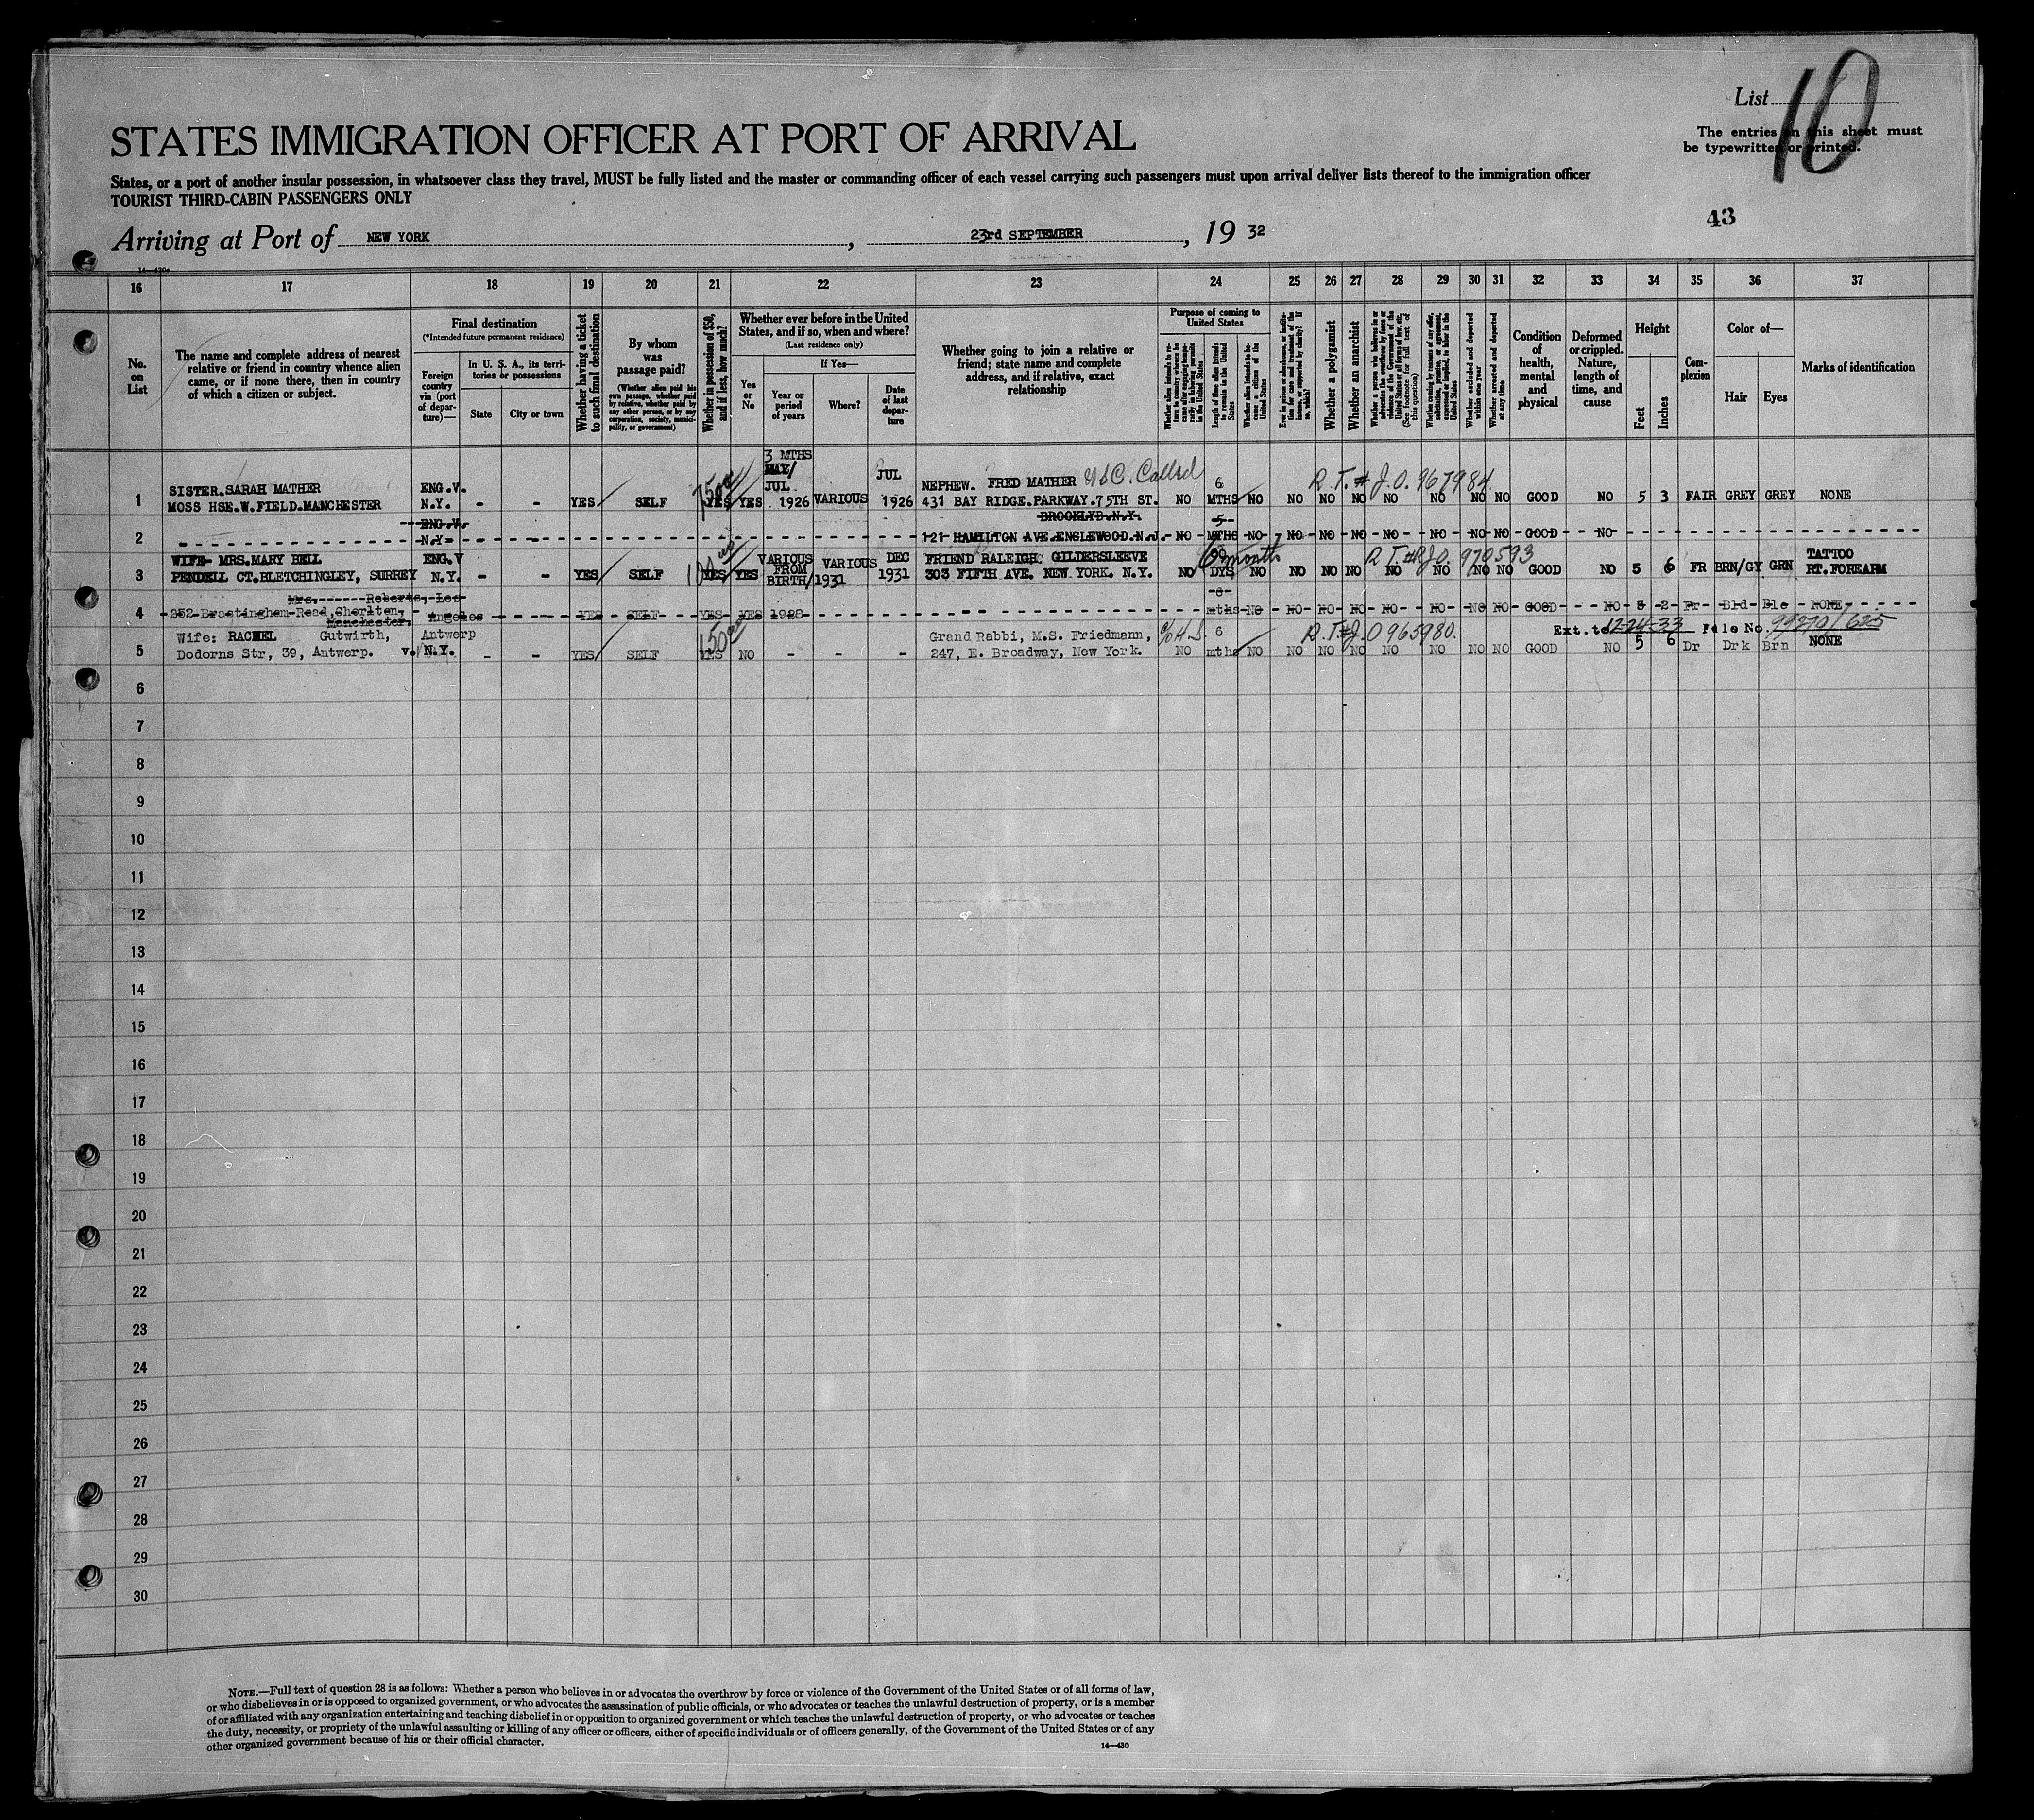 List 10
STATES IMMIGRATION OFFICER AT PORT OF ARRIVAL
The entries on this sheet must
be typewritten or printed.
States, or a port of another insular possession, in whatsoever class they travel, MUST be fully listed and the master or commanding officer of each vessel carrying such passengers must upon arrival deliver lists thereof to the immigration officer
TOURIST THIRD-CABIN PASSENGERS ONLY
43
Arriving at Port of NEW YORK, 23rd SEPTEMBER, 19 32
16 17 18 19 20 21 22 23 24 25 26 27 28 29 30 31 32 33 34 35 36 37
No. on List
The name and complete address of nearest relative or friend in country whence alien came, or if none there, then in country of which a citizen or subject.
Final destination
(*Intended future permanent residence)
Foreign country via (port of departure)—
In U. S. A., its territories or possessions
State
City or town
Whether having a ticket to such final destination
By whom was passage paid?
(Whether alien paid his own passage, whether paid by relative, whether paid by any other person, or by any corporation, society, municipality, or government)
Whether in possession of $50, and if less, how much?
Whether ever before in the United States, and if so, when and where?
(Last residence only)
Yes or No
If Yes—
Year or period of years
Where?
Date of last departure
Whether going to join a relative or friend; state name and complete address, and if relative, exact relationship
Purpose of coming to United States
Whether alien intends to return to country whence he came after engaging temporarily in laboring pursuits in the United States
Length of time alien intends to remain in the United States
Whether alien intends to become a citizen of the United States
Ever in prison or almshouse, or institution for care and treatment of the insane, or supported by charity? If so, which?
Whether a polygamist
Whether an anarchist
Whether a person who believes in or advocates the overthrow by force or violence of the Government of the United States or all forms of law, etc. (See footnote for full text of this question)
Whether coming by reason of any offer, solicitation, promise, or agreement, expressed or implied, to labor in the United States
Whether excluded and deported within one year
Whether arrested and deported at any time
Condition of health, mental and physical
Deformed or crippled. Nature, length of time, and cause
Height
Feet
Inches
Complexion
Color of—
Hair
Eyes
Marks of identification
3 MTHS
MAY/ JUL
SISTER.SARAH MATHER ENG.V. 750 JUL NEPHEW. FRED MATHER 6 R.T.# J.O. 967984
1 MOSS HSE.W.FIELD.MANCHESTER N.Y. - - YES SELF YES YES 1926 VARIOUS 1926 431 BAY RIDGE.PARKWAY.75TH ST. NO MTHS NO NO NO NO NO NO NO NO GOOD NO 5 3 FAIR GREY GREY NONE
ENG.V. BROOKLYD.N.Y. 5
2 N.Y. - - - 121 HAMILTON AVE.ENGLEWOOD.N.J. NO MTHS NO NO NO NO NO NO NO NO GOOD NO
WIFE- MRS.MARY BELL ENG.V 100 VARIOUS FROM VARIOUS DEC FRIEND RALEIGH GILDERSLEEVE 90 6 months R.T.# J.O. 970593 TATTOO
3 PENDELL CT.BLETCHINGLEY, SURREY N.Y. - - YES SELF YES YES BIRTH/1931 1931 303 FIFTH AVE. NEW YORK. N.Y. NO DYS NO NO NO NO NO NO NO NO GOOD NO 5 6 FR BRN/GY GRN RT.FOREARM
Mrs. Roberts, Los
4 Road, Chorlton, Manchester. Angeles YES SELF YES YES 1928 mths No NO NO NO NO NO NO NO GOOD NO 5 2 Fr Bld Ble NONE
Wife: RACHEL Gutwirth, Antwerp 150 Grand Rabbi, M.S. Friedmann, 6 R.T.# J.O 965980. Ext. to 12-24-33 File No. 99270/625
5 Dodorns Str, 39, Antwerp. v. N.Y. - - YES SELF YES NO - - - 247, E. Broadway, New York. NO mths NO NO NO NO NO NO NO NO GOOD NO 5 6 Dr Drk Brn NONE
6
7
8
9
10
11
12
13
14
15
16
17
18
19
20
21
22
23
24
25
26
27
28
29
30
NOTE.—Full text of question 28 is as follows: Whether a person who believes in or advocates the overthrow by force or violence of the Government of the United States or of all forms of law,
or who disbelieves in or is opposed to organized government, or who advocates the assassination of public officials, or who advocates or teaches the unlawful destruction of property, or is a member
of or affiliated with any organization entertaining and teaching disbelief in or opposition to organized government or which teaches the unlawful destruction of property, or who advocates or teaches
the duty, necessity, or propriety of the unlawful assaulting or killing of any officer or officers, either of specific individuals or of officers generally, of the Government of the United States or of any
other organized government because of his or their official character.
14—430